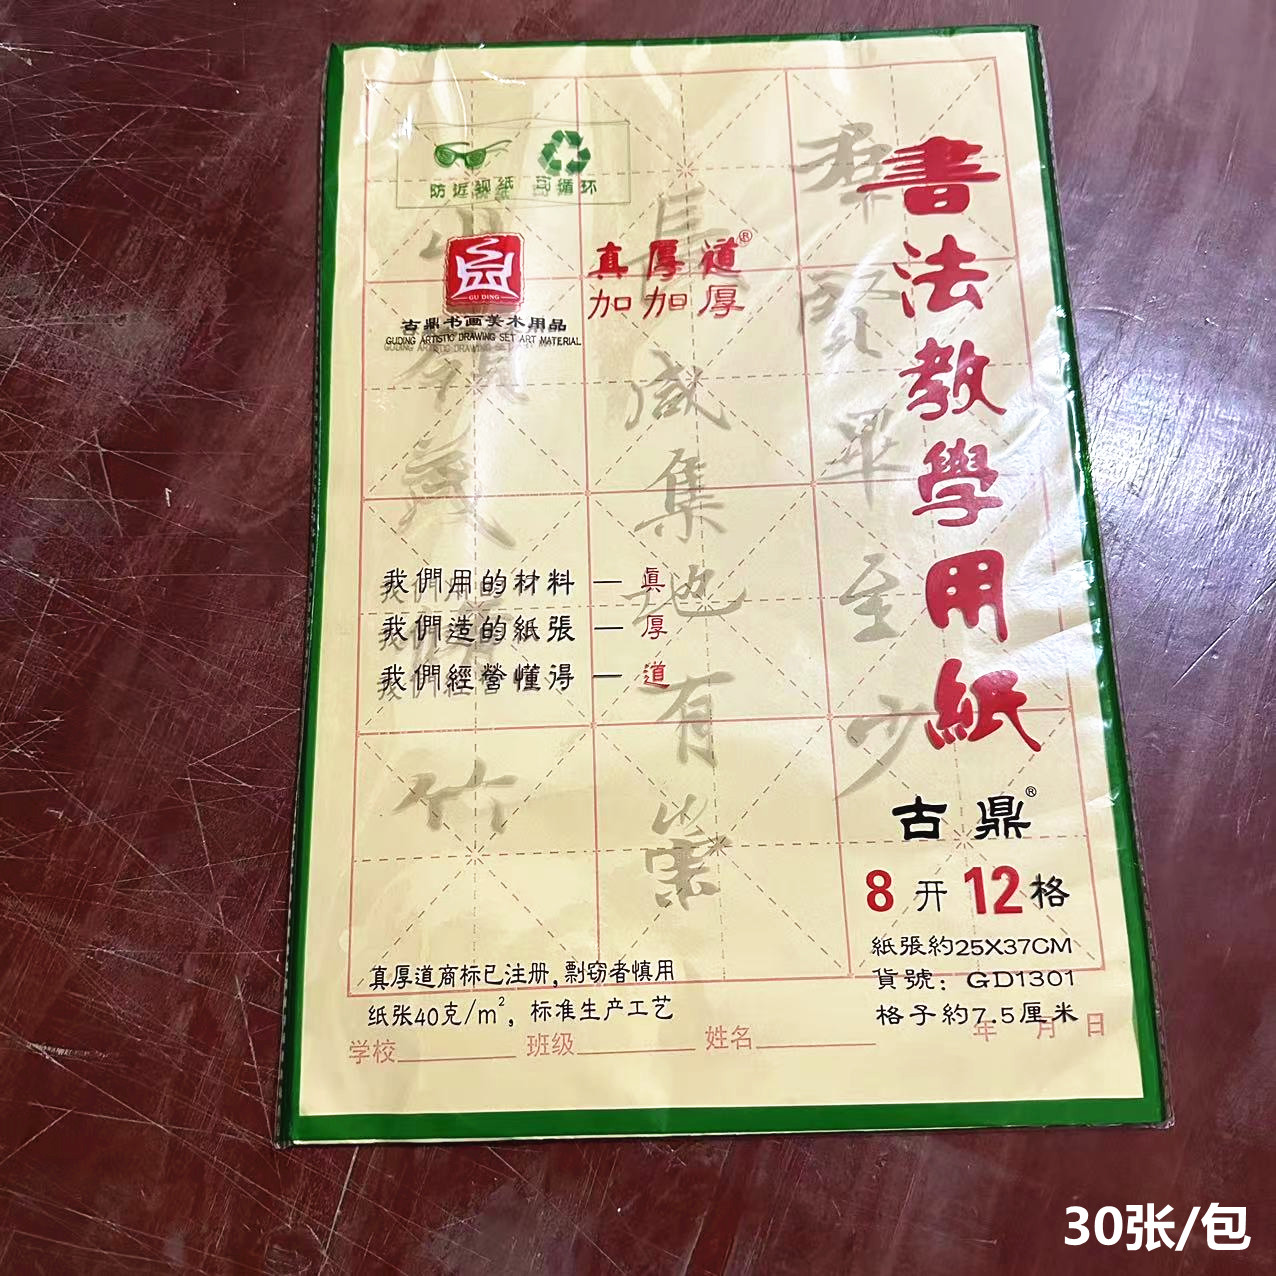 防近视纸 可循环
GU DING
古鼎书画美术用品
GUDING ARTISTIC DRAWING SET ART MATERIAL
真厚道®
加加厚
書法教學用紙
古鼎®
8开12格
紙張約25X37CM
貨號：GD1301
格子約7.5厘米
我們用的材料—真
我們造的紙張—厚
我們經營懂得—道
群賢畢至少
長咸集地有崇
山領茂脩竹
真厚道商标已注册，剽窃者慎用
纸张40克/m²，标准生产工艺
学校 班级 姓名 年 月 日
30张/包